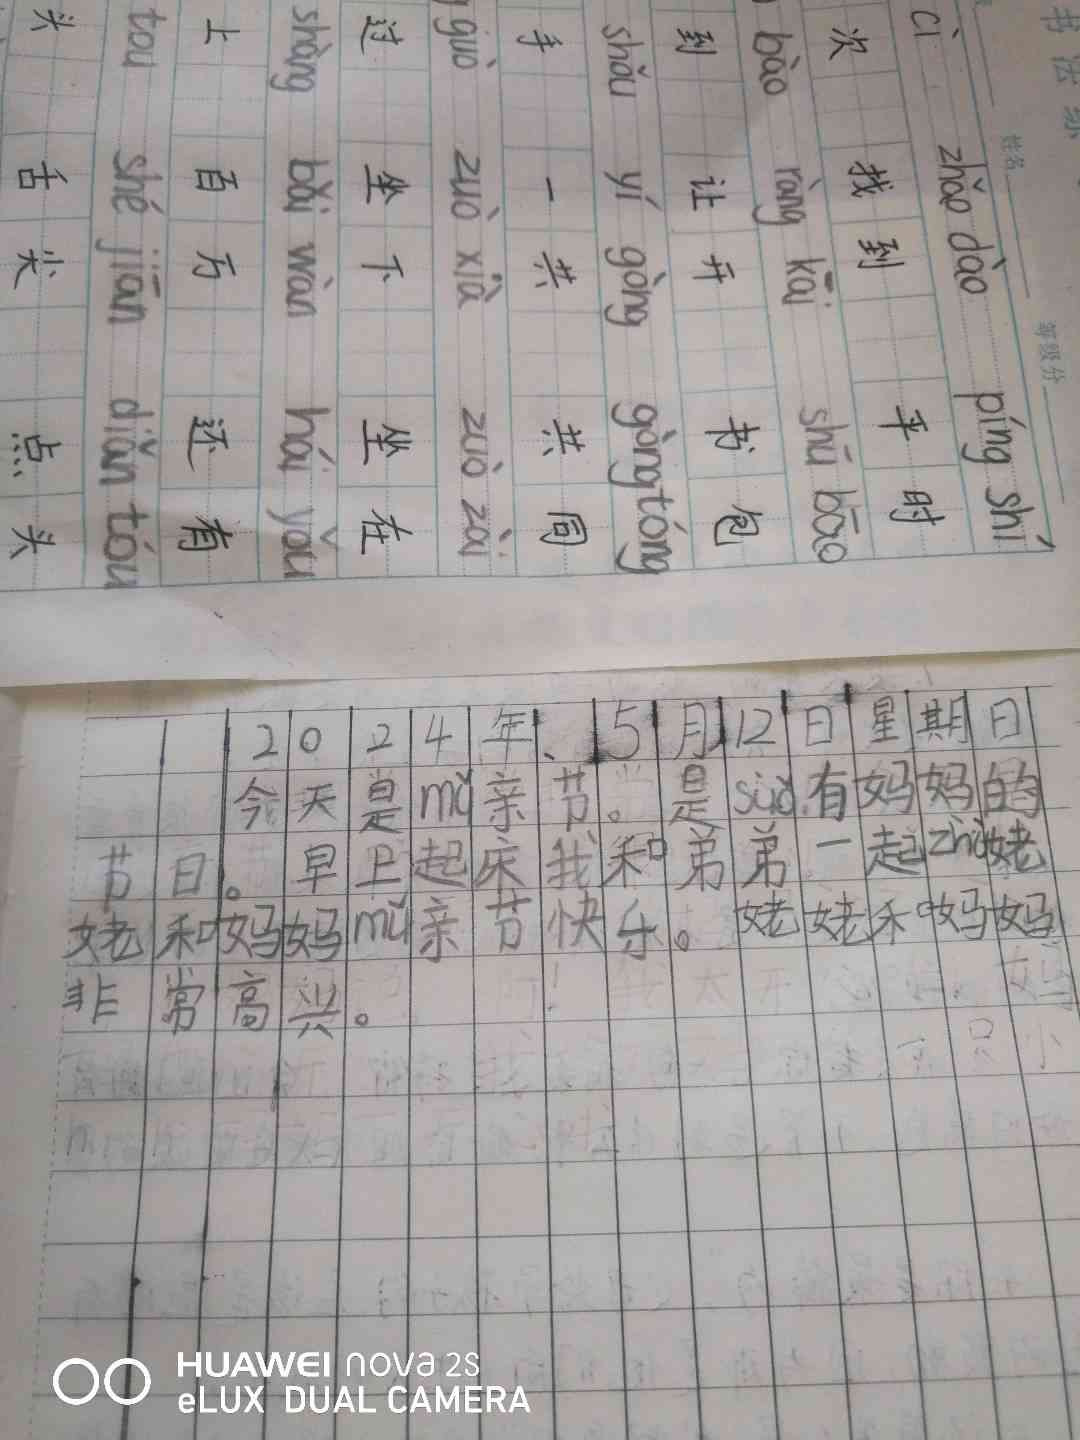 书法练
姓名 等级分
cì zhǎo dào píng shí
次 找到 平时
bào ràng kāi shū bāo
到 让开 书包
shǒu yí gòng gòng tóng
手 一共 共同
guò zuò xià zuò zài
过 坐下 坐在
shàng bǎi wàn hái yǒu
上 百万 还有
tou shé jiān diǎn tóu
头 舌尖 点头
2024年、5月12日星期日
今天是mǔ亲节。是suǒ有妈妈的
节日。早上起床我和弟弟一起zhù姥
姥和妈妈mǔ亲节快乐。姥姥和妈妈
非常高兴。
HUAWEI nova 2S
eLUX DUAL CAMERA